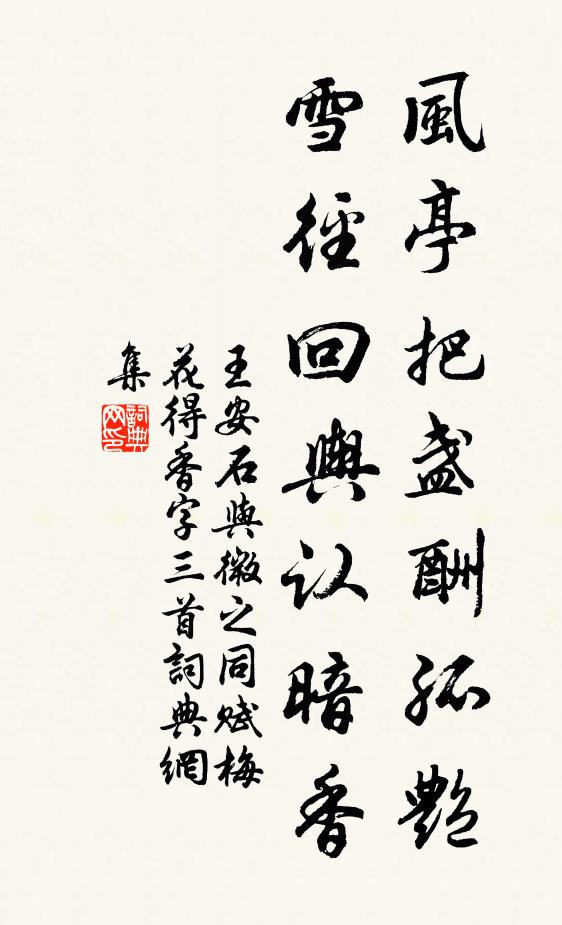 風亭把盏酬孤艷
雪徑回輿认暗香
王安石與微之同赋梅
花得香字三首詞典網
集
詞典网印